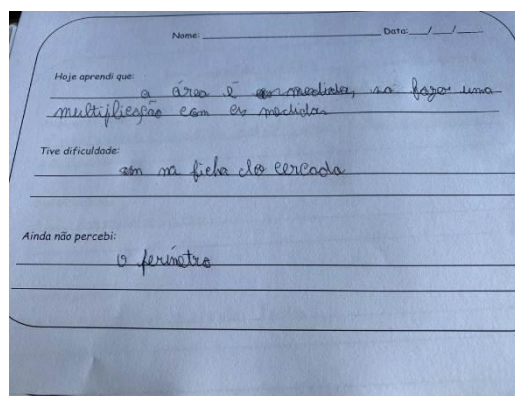 Nome: Data: __/__/__
Hoje aprendi que:
a área é só fazer uma
multiplicação com as medidas
Tive dificuldade:
na ficha do cercado
Ainda não percebi:
O perímetro